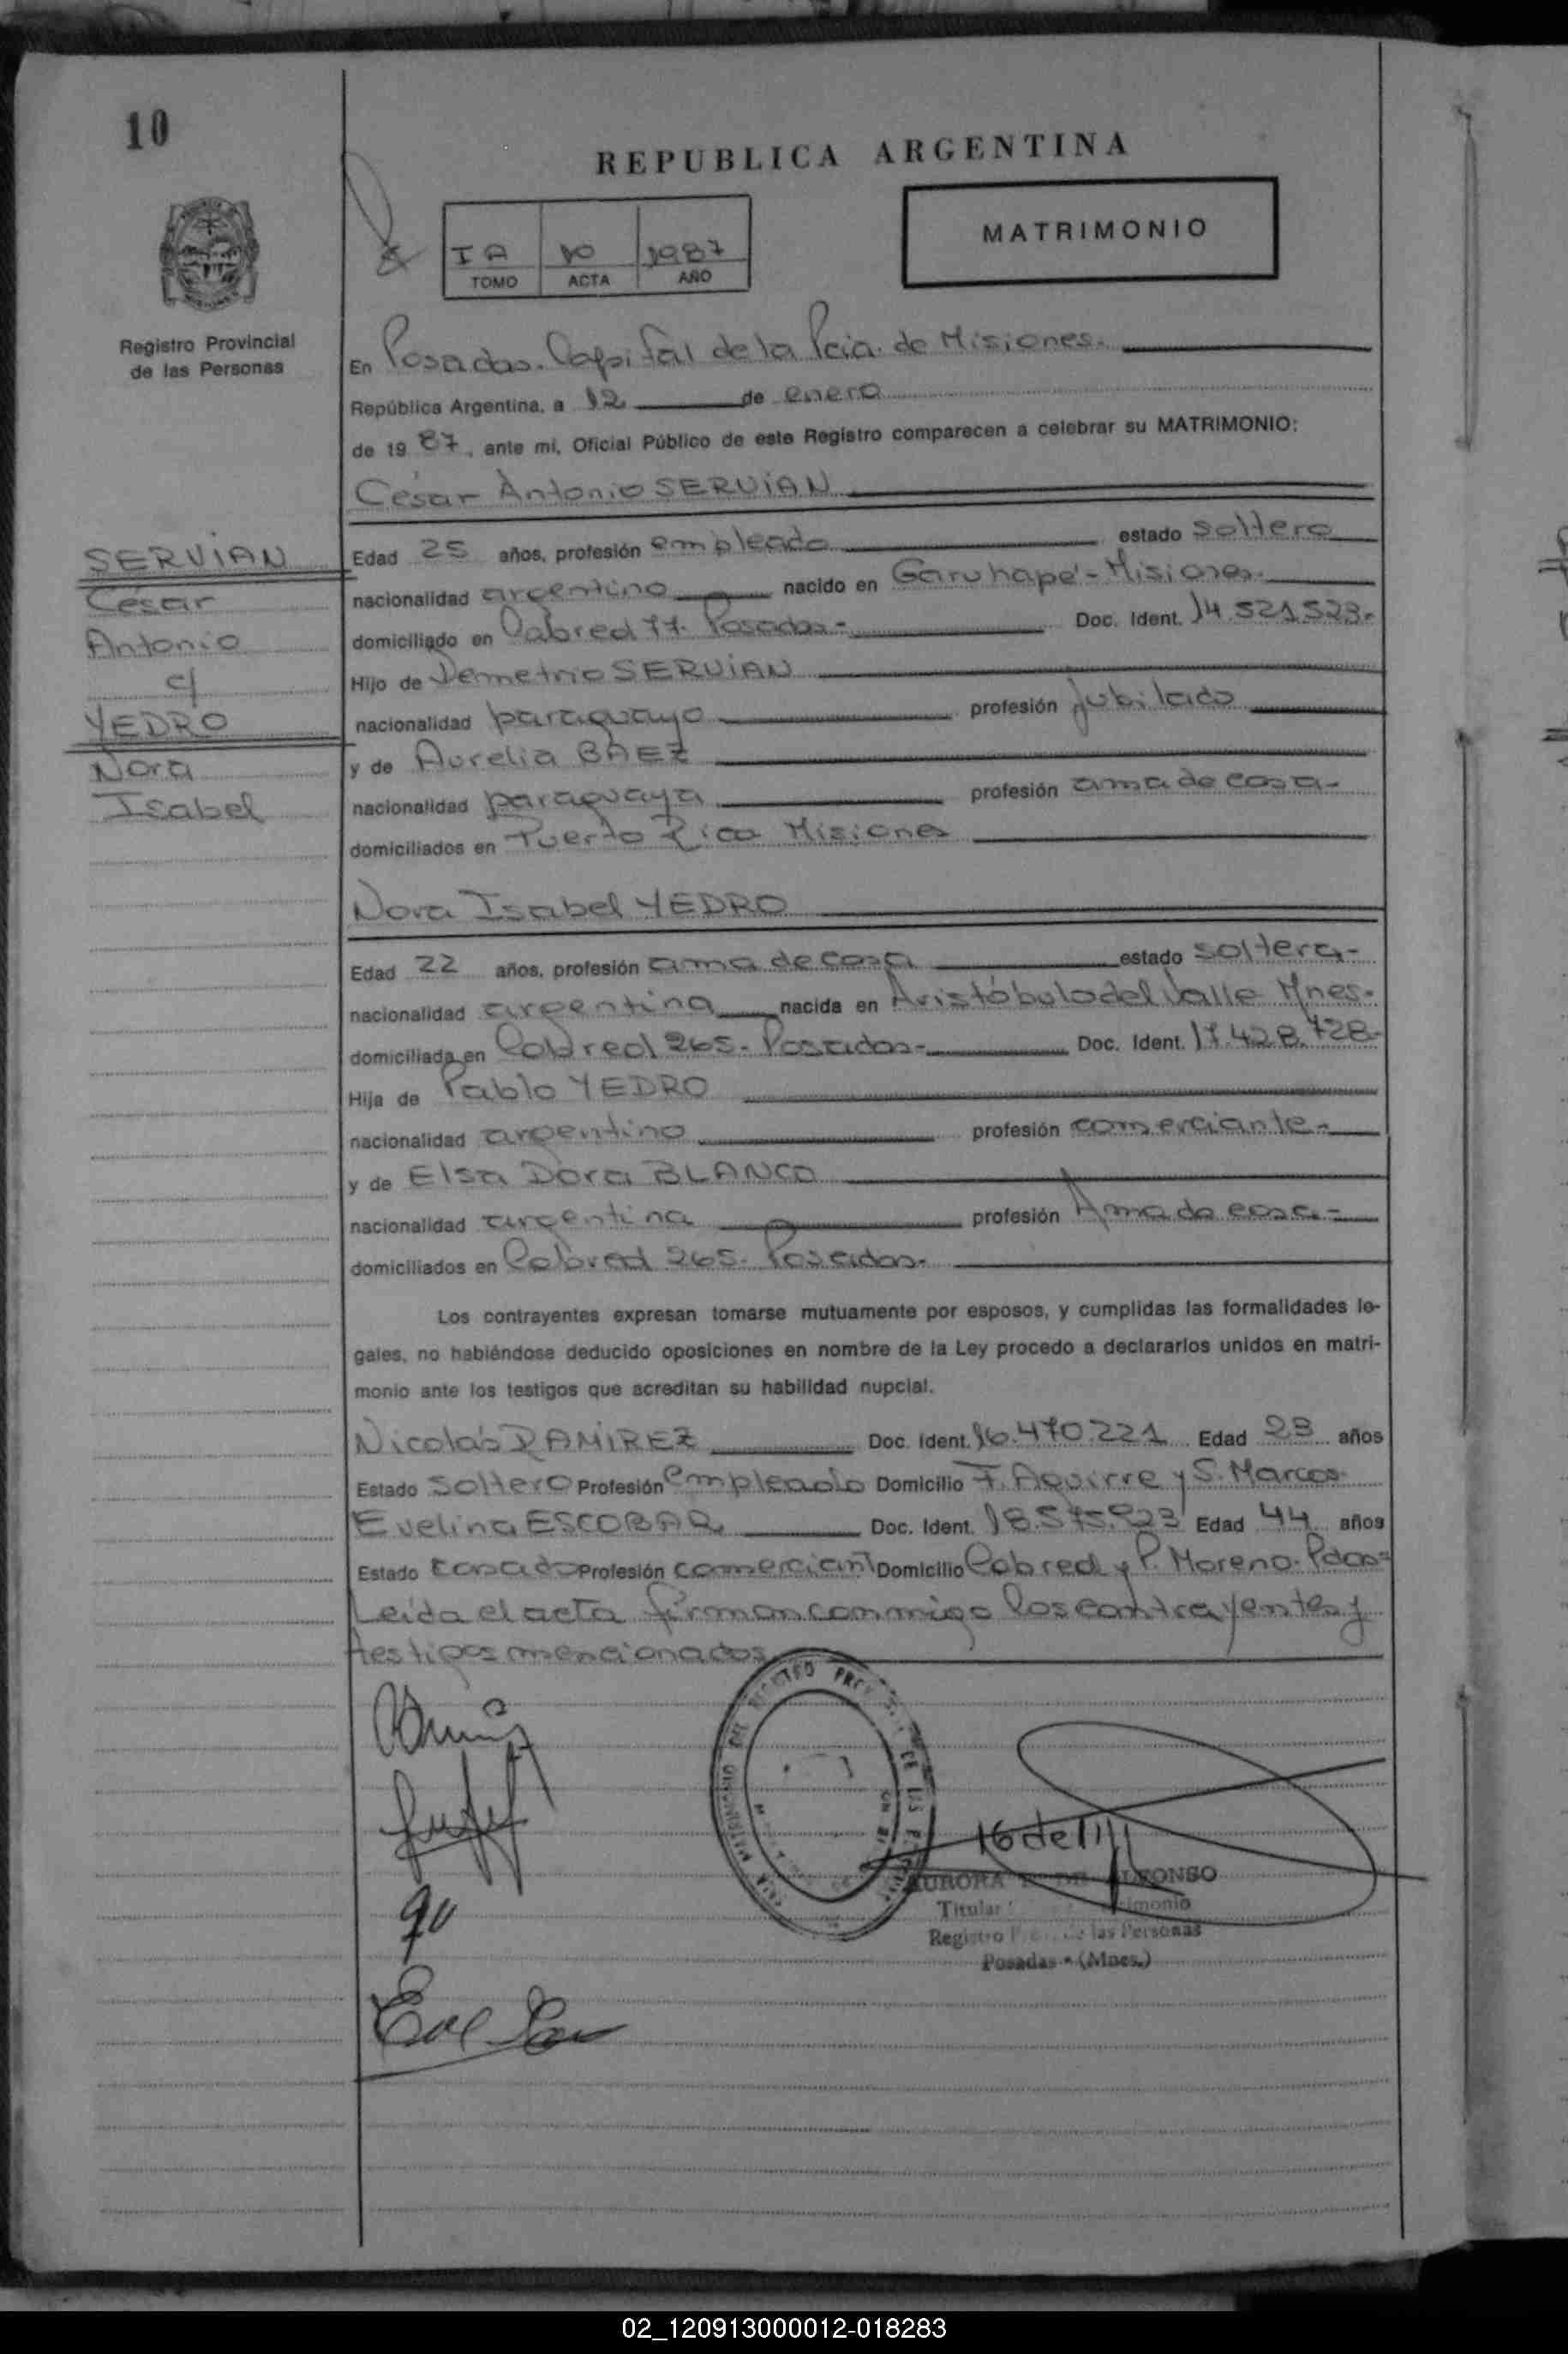 10
REPUBLICA ARGENTINA
I A 10 1987
TOMO ACTA AÑO
MATRIMONIO
Registro Provincial
de las Personas
En Posadas. Capital de la Pcia. de Misiones.
República Argentina, a 12 de enero
de 19 87, ante mi, Oficial Público de este Registro comparecen a celebrar su MATRIMONIO:
César Antonio SERVIAN
SERVIAN
César
Antonio
c/
YEDRO
Nora
Isabel
Edad 25 años, profesión empleado estado soltero
nacionalidad argentino nacido en Garuhapé - Misiones.
domiciliado en Cabred 77. Posadas- Doc. Ident. 14.521.523.-
Hijo de Demetrio SERVIAN
nacionalidad paraguayo profesión jubilado
y de Aurelia BAEZ
nacionalidad paraguaya profesión ama de casa-
domiciliados en Puerto Rico Misiones
Nora Isabel YEDRO
Edad 22 años, profesión ama de casa estado soltera-
nacionalidad argentina nacida en Aristóbulo del Valle Mnes.
domiciliada en Cabred 265. Posadas- Doc. Ident. 17.428.728-
Hija de Pablo YEDRO
nacionalidad argentino profesión comerciante-
y de Elsa Dora BLANCO
nacionalidad argentina profesión Ama de casa-
domiciliados en Cabred 265. Posadas.
Los contrayentes expresan tomarse mutuamente por esposos, y cumplidas las formalidades le-
gales, no habiéndose deducido oposiciones en nombre de la Ley procedo a declararlos unidos en matri-
monio ante los testigos que acreditan su habilidad nupcial.
Nicolás RAMIREZ Doc. Ident. 16.470.221 Edad 23 años
Estado soltero Profesión empleado Domicilio F. Aguirre y S. Marcos
Evelina ESCOBAR Doc. Ident. Edad 44 años
Estado casado Profesión comerciant Domicilio Cabred y P. Moreno. Pdas-
Leída el acta firman conmigo los contrayentes y
testigos mencionados
16 de
AURORA DE ALFONSO
Titular
Registro de las Personas
Posadas - (Mnes.)
02_120913000012-018283